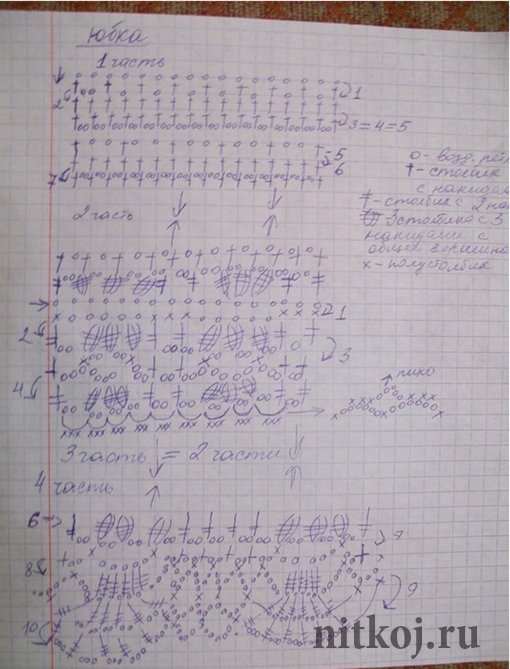 юбка
1 часть
1
2
3=4=5
5
6
7
о - возд. петл
† - столбик
с накидом
ǂ - столбик с 2 нак
3 столбика с 3
накидами с
общей вершиной
х - полустолбик
2 часть
1
2
3
4
пико
3 часть = 2 части
4 часть
6
7
8
9
10
nitkoj.ru